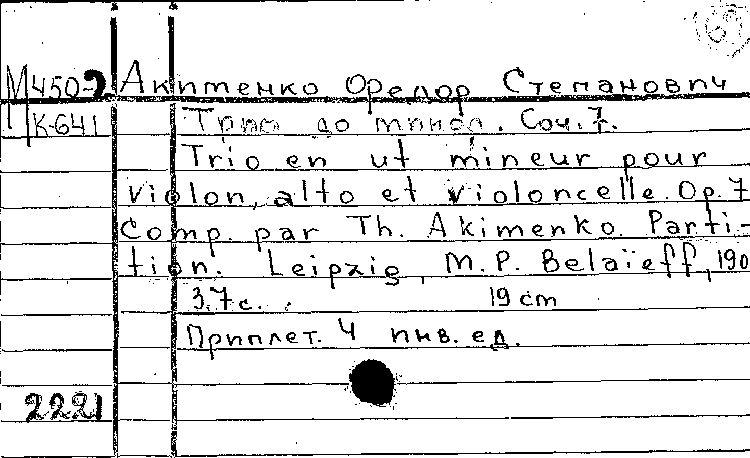 М450-2 Акименко Федор Степанович
К-641 Трио до минор. Соч. 7.
Trio en ut mineur pour
violon, alto et violoncelle. Op. 7
Comp. par Th. Akimenko. Parti-
tion. Leipzig, M. P. Belaïeff, 190
37 с. 19 cm
Приплет. 4 инв. ед.
2221